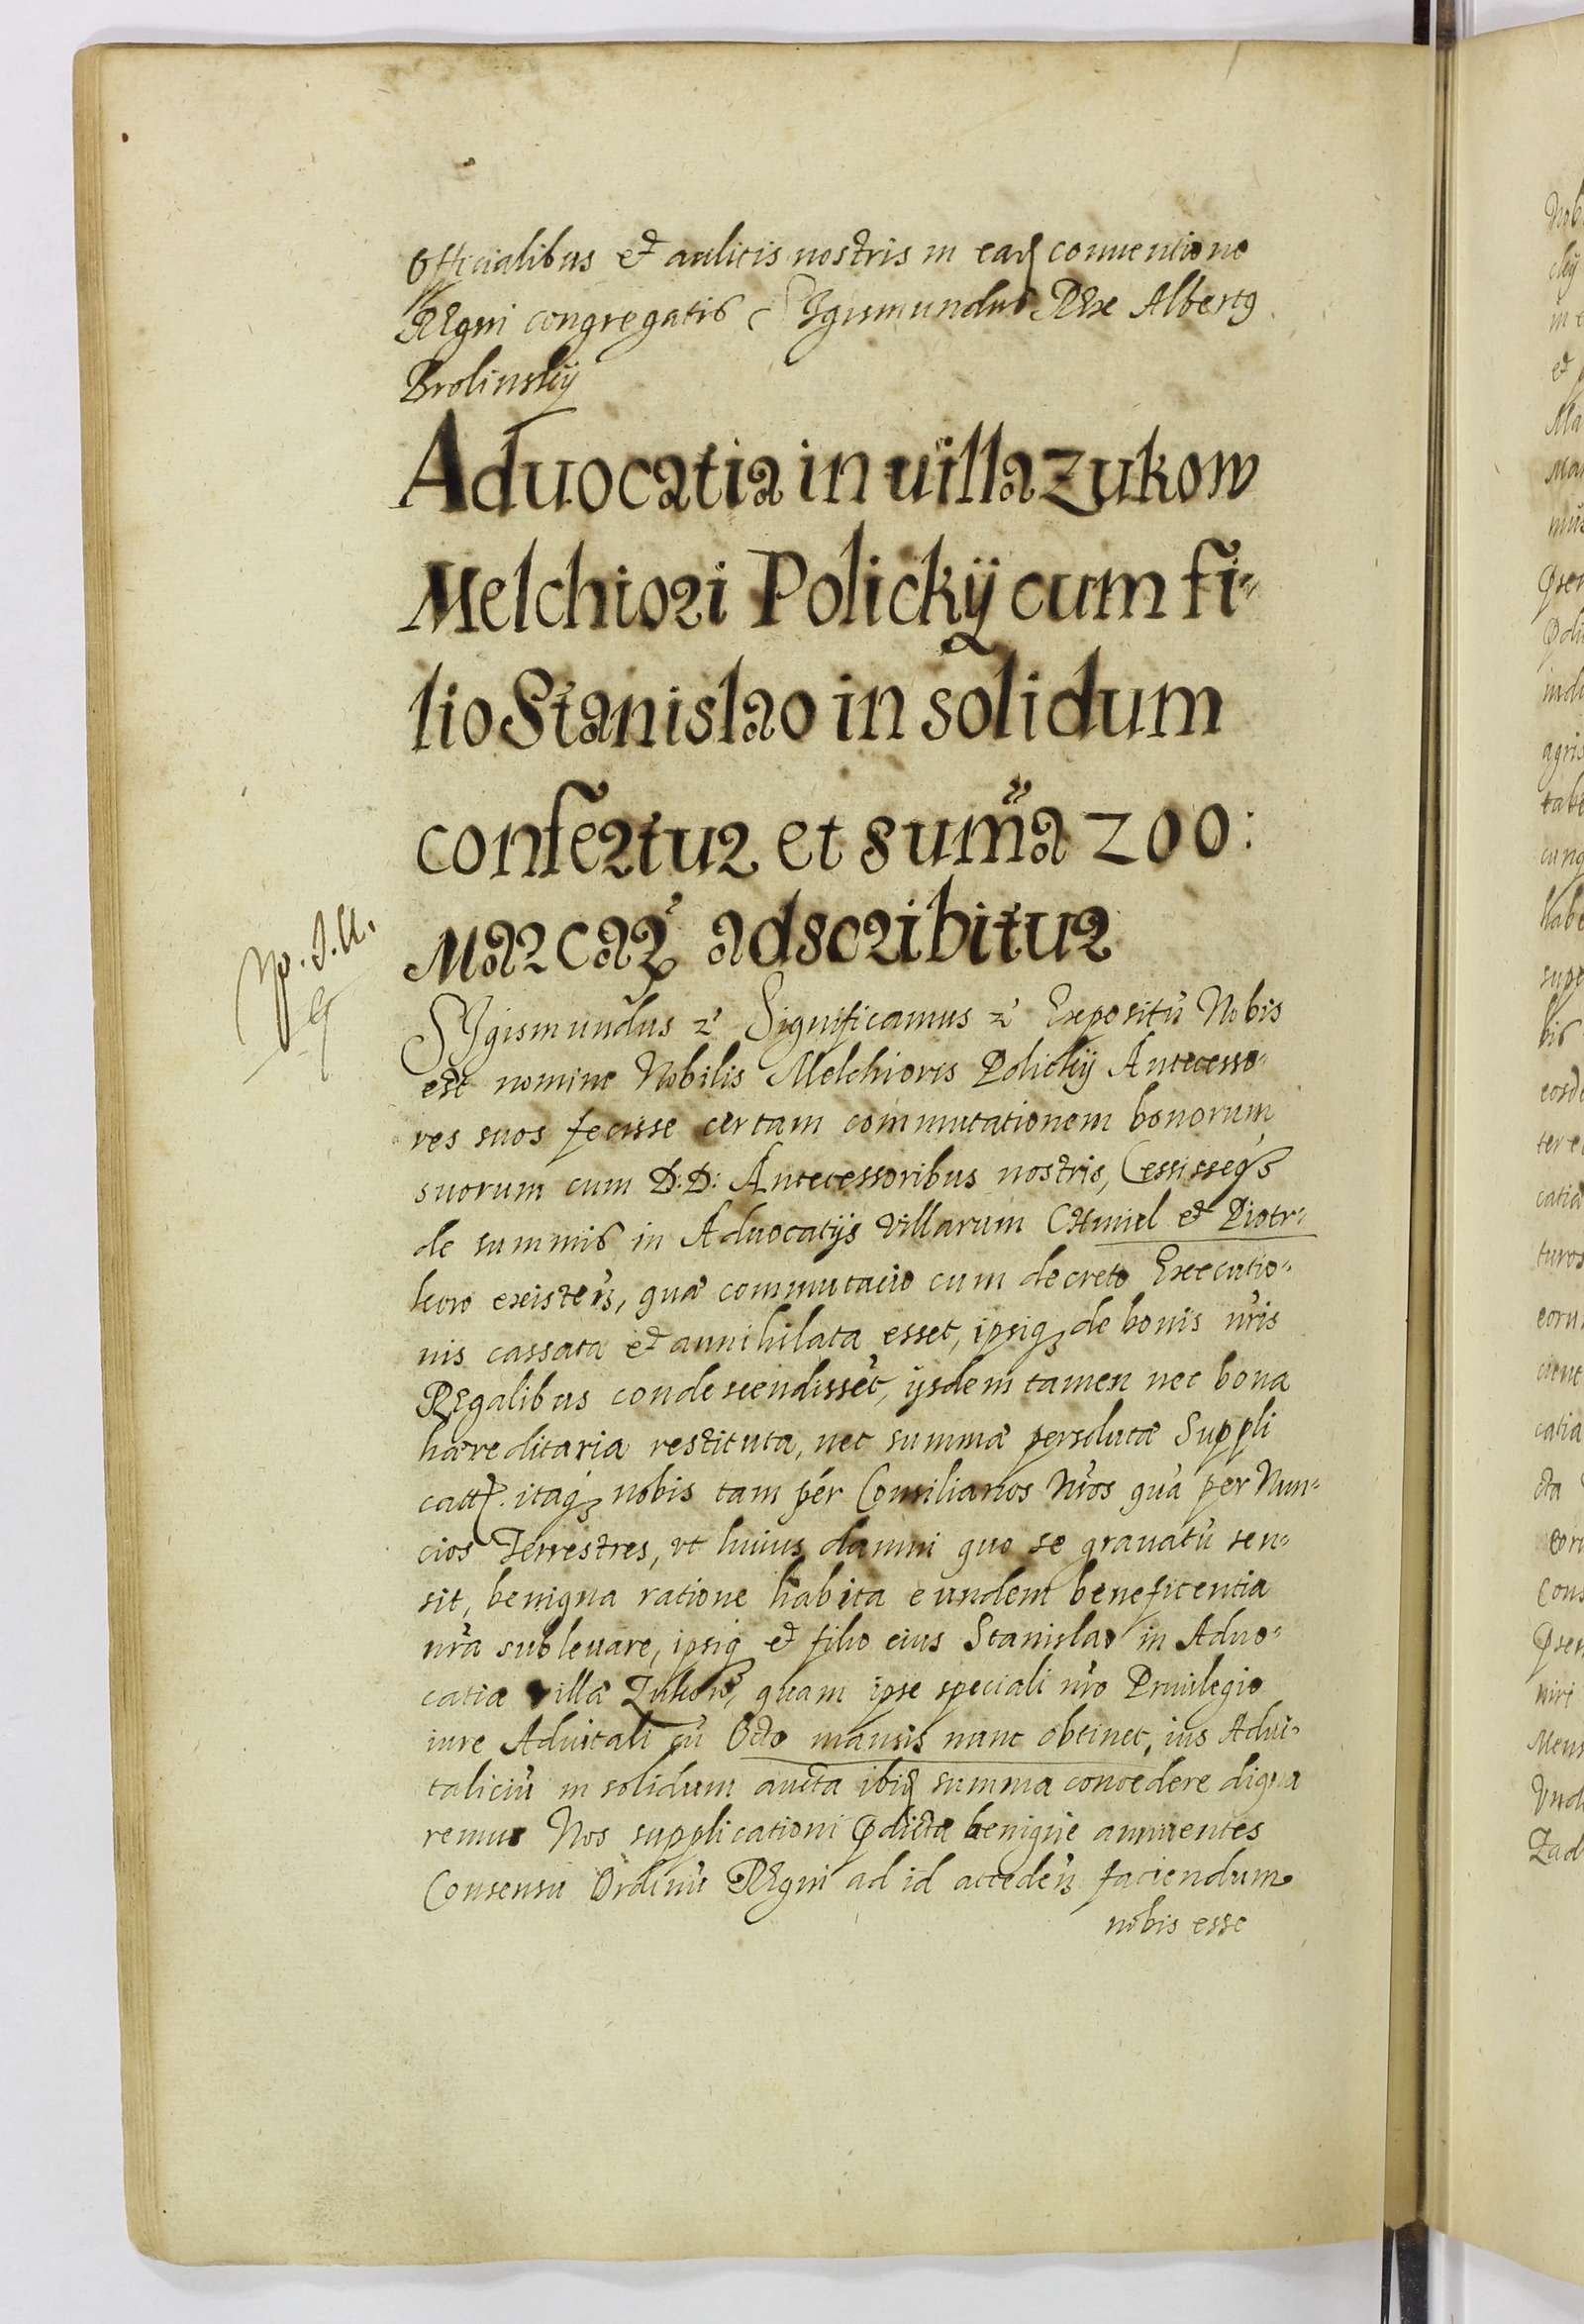 Officialibus et aulicis nostris in ead conuentione
REgni congregatis SIgismundus REx Albertg
Brolinskij
Aduocatia in uilla Zukow
Melchiori Polickij cum fi-
lio Stanislao in solidum
confertur et sum̃a 200:
Marcaꝝ adscribitur
SIgismundus ꝛ Significamus ꝛ Expositũ Nobis
est nomine Nobilis Melchioris Polickij Antecesso-
res suos fecisse certam commutationem bonorum
suorum cum D:D: Antecessoribus nostris, Cessisseqꝫ
de summis in Aduocatijs villarum CHmiel et Piotr-
kow existeñ, quæ commutacio cum decreto Executio-
nis cassata et annihilata esset, ipsiqꝫ de bonis nr̃is
REgalibus condescendisset, ijsdem tamen nec bona
hæreditaria restituta, nec summæ persolutæ Suppli
catt. itaqꝫ nobis tam per Consiliarios Nr̃os quã per Nun-
cios Terrestres, vt huius damni quo se grauatũ sen-
sit, benigna ratione habita eundem beneficentia
nr̃a subleuare, ipsiq et filio eius Stanislao in Aduo-
catia villæ Zukow, quam ipse speciali nr̃o Priuilegio
iure Aduitali cũ Octo mansis nunc obtinet, ius Adui-
taliciũ in solidum aucta ibid summa concedere digna
remur Nos supplicationi ꝓdictæ benigne annuentes
Consensu Ordinũ REgni ad id accedeñ faciendum
nobis esse